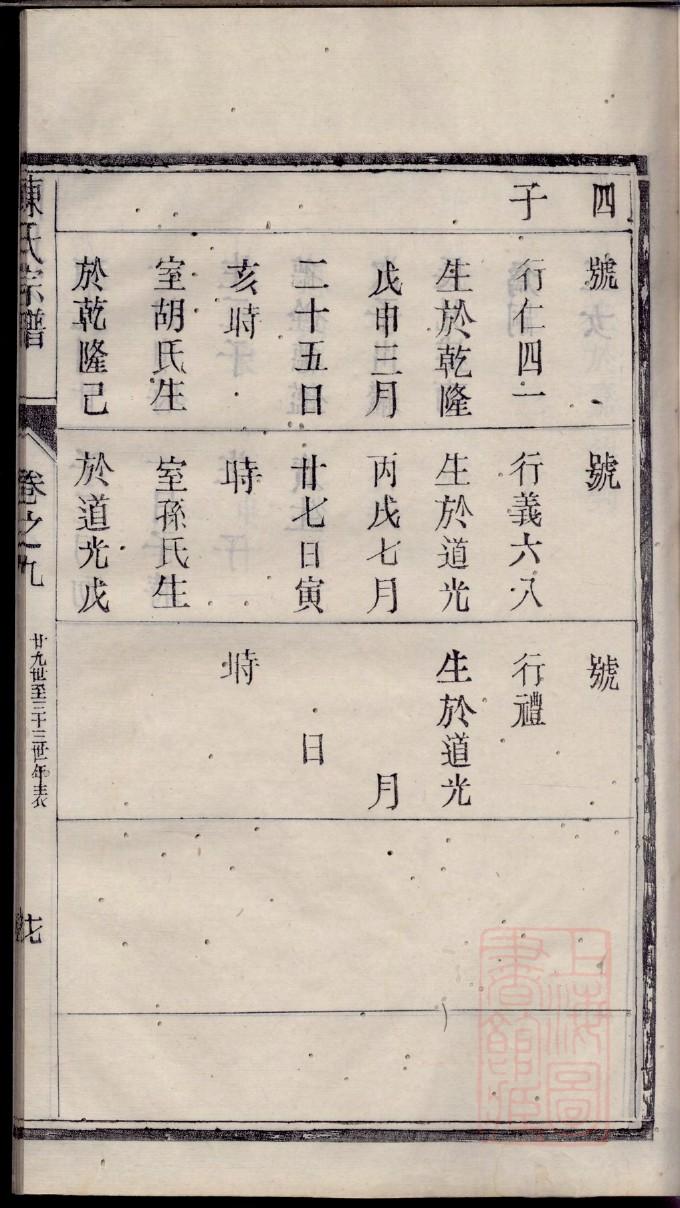 四
子
號
行仁四一
生於乾隆
戊申三月
二十五日
亥時
室胡氏生
於乾隆己
號
行義六八
生於道光
丙戌七月
廿七日寅
時
室孫氏生
於道光戊
號
行禮
生於道光
月
日
時
陳氏宗譜
卷之九
廿九世至三十三世年表
上海圖
書館藏